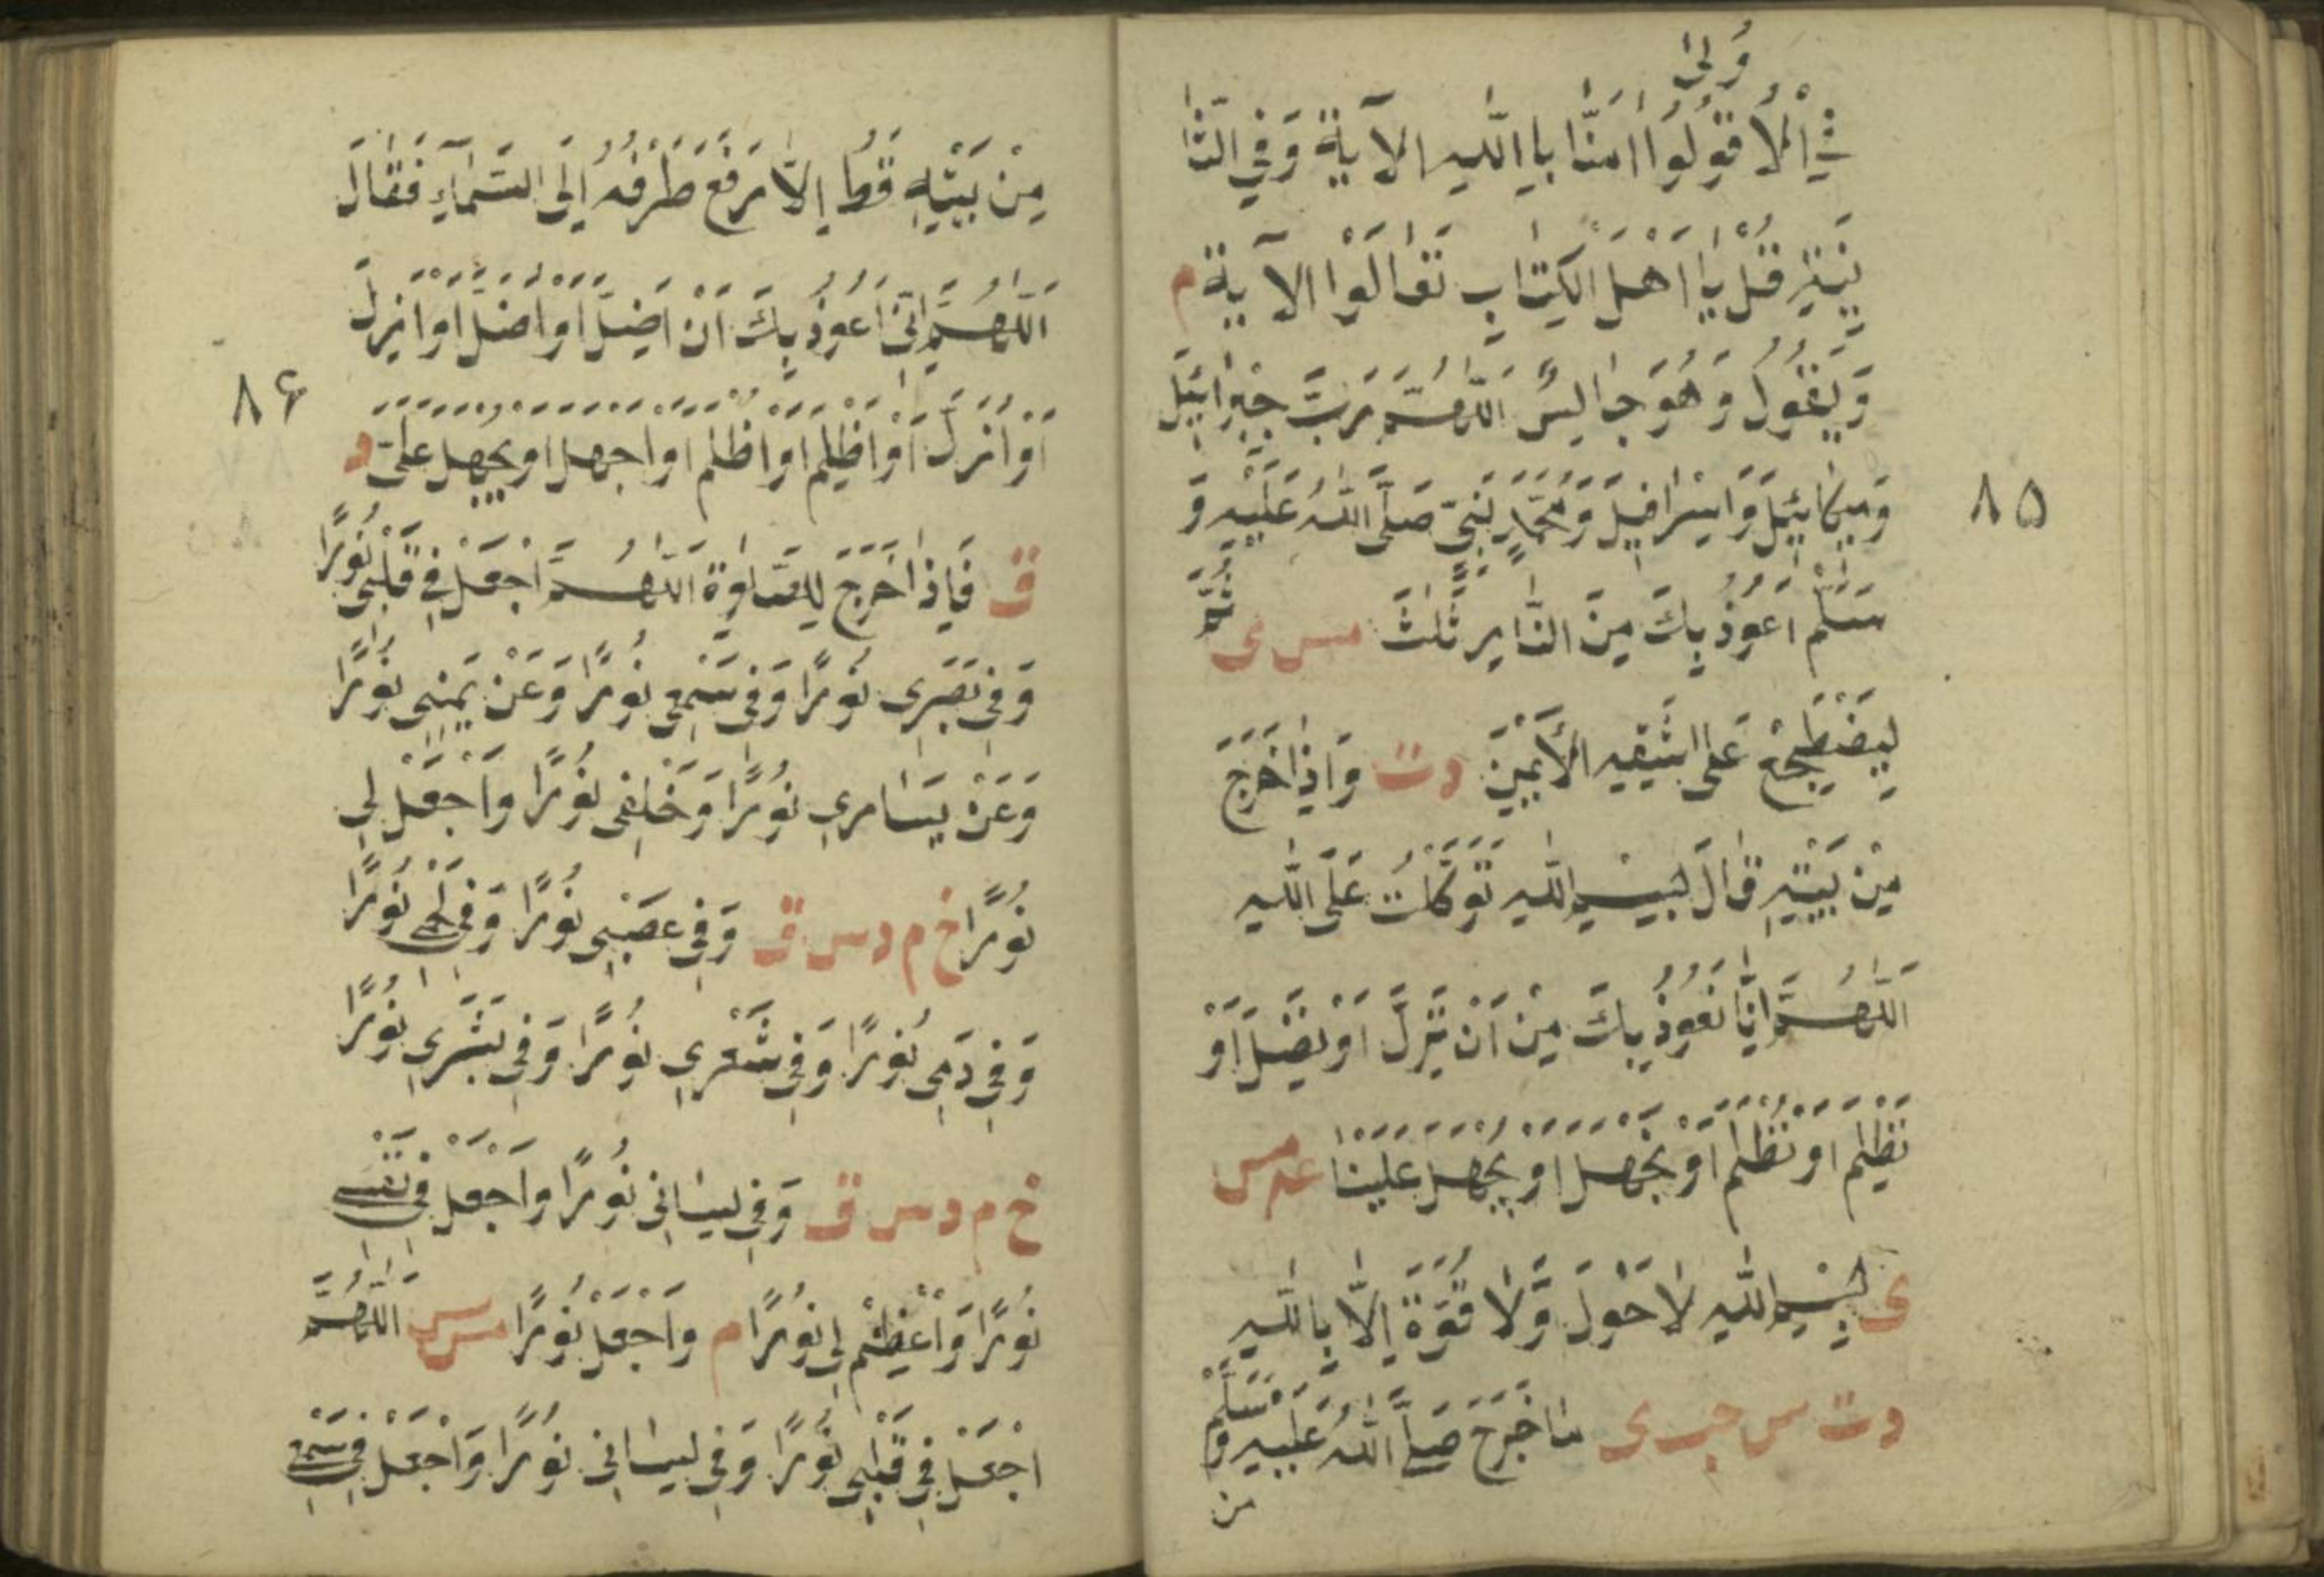 ولى
في الا قولوا امنا بالله الآية وفي الثا
نية قل يا اهل الكتاب تعالوا الآية م
وَيَقُولُ وَهُوَ جَالِسٌ اَللّٰهُمَّ رَبَّ جِبْرَائِيْلَ
وَمِيكَائِيلَ وَاِسْرَافِيلَ وَمُحَمَّدٍ نَبِيِّ صَلَّى اللّٰهُ عَلَيْهِ وَ
سَلَّم اَعُوْذُ بِكَ مِنَ النَّارِ ثَلٰثَ مس ى ثُمَّ
لِيَضْطَجِعْ عَلَى شِقِّهِ الْأَيْمَنِ دت وَاِذَا خَرَجَ
٨٥
مِنْ بَيْتِهِ قَالَ بِسْمِ اللّٰهِ تَوَكَّلْتُ عَلَى اللّٰهِ
اَللّٰهُمَّ اِنَّا نَعُوْذُ بِكَ مِنْ اَنْ نَزِلَّ اَوْ نَضِلَّ اَوْ
نَظْلِمَ اَوْ نُظْلَمَ اَوْ نَجْهَلَ اَوْ يُجْهَلَ عَلَيْنَا عه مس
ى بِسْمِ اللّٰهِ لَا حَوْلَ وَّلَا قُوَّةَ اِلَّا بِاللّٰهِ
دت س حب ى ما خَرَجَ صَلَّى اللّٰهُ عَلَيْهِ وَسَلَّم
من
مِنْ بَيْتِهِ قَطُّ اِلَّا رَفَعَ طَرْفَهُ اِلَى السَّمَآءِ فَقَالَ
اَللّٰهُمَّ اِنِّي اَعُوْذُ بِكَ اَنْ اَضِلَّ اَوْ اُضَلَّ اَوْ اَزِلَّ
اَوْ اُزَلَّ اَوْ اَظْلِمَ اَوْ اُظْلَمَ اَوْ اَجْهَلَ اَوْ يُجْهَلَ عَلَيَّ د
٨٦
ق فَاِذَا خَرَجَ لِلصَّلوٰةِ اَللّٰهُمَّ اجْعَلْ فِي قَلْبِي نُوْرًا
وَفِي بَصَرِي نُوْرًا وَفِي سَمْعِي نُوْرًا وَعَنْ يَمِيْنِي نُوْرًا
وَعَنْ يَسَارِي نُوْرًا وَخَلْفِي نُوْرًا وَاجْعَلْ لِي
نُوْرًا خ م د س ق وَفِي عَصَبِي نُوْرًا وَفِي لَحْمِي نُوْرًا
وَفِي دَمِي نُوْرًا وَفِي شَعْرِي نُوْرًا وَفِي بَشَرِي نُوْرًا
خ م د س ق وَفِي لِسَانِي نُوْرًا وَاجْعَلْ فِي نَفْسِي
نُوْرًا وَاَعْظِمْ لِي نُوْرًا م وَاجْعَلْ نُوْرًا مس س اَللّٰهُمَّ
اجْعَلْ فِي قَلْبِي نُوْرًا وَفِي لِسَانِي نُوْرًا وَاجْعَلْ فِي سَمْعِي